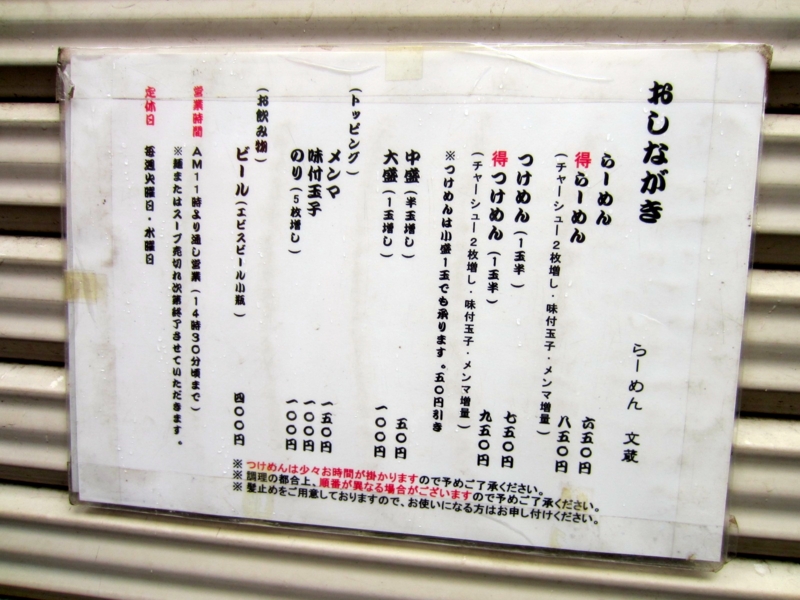 おしながき
らーめん 文蔵
らーめん 六五〇円
得らーめん 八五〇円
(チャーシュー2枚増し・味付玉子・メンマ増量)
つけめん(1玉半) 七五〇円
得つけめん(1玉半) 九五〇円
(チャーシュー2枚増し・味付玉子・メンマ増量)
※つけめんは小盛1玉でも承ります。五〇円引き
中盛(半玉増し) 五〇円
大盛(1玉増し) 一〇〇円
(トッピング)
メンマ 一五〇円
味付玉子 一〇〇円
のり(5枚増し) 一〇〇円
(お飲み物)
ビール(エビスビール小瓶) 四〇〇円
営業時間 AM11時より通し営業(14時30分頃まで)
※麺またはスープ売切れ次第終了させていただきます。
定休日 毎週火曜日・水曜日
※つけめんは少々お時間が掛かりますので予めご了承ください。
※調理の都合上、順番が異なる場合がございますので予めご了承ください。
※髪止めをご用意しておりますので、お使いになる方はお申し付けください。